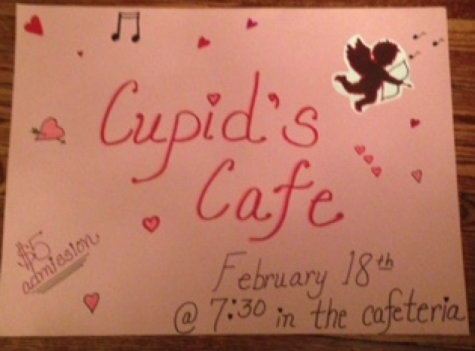 Cupid's
Cafe
$5
admission
February 18th
@ 7:30 in the cafeteria